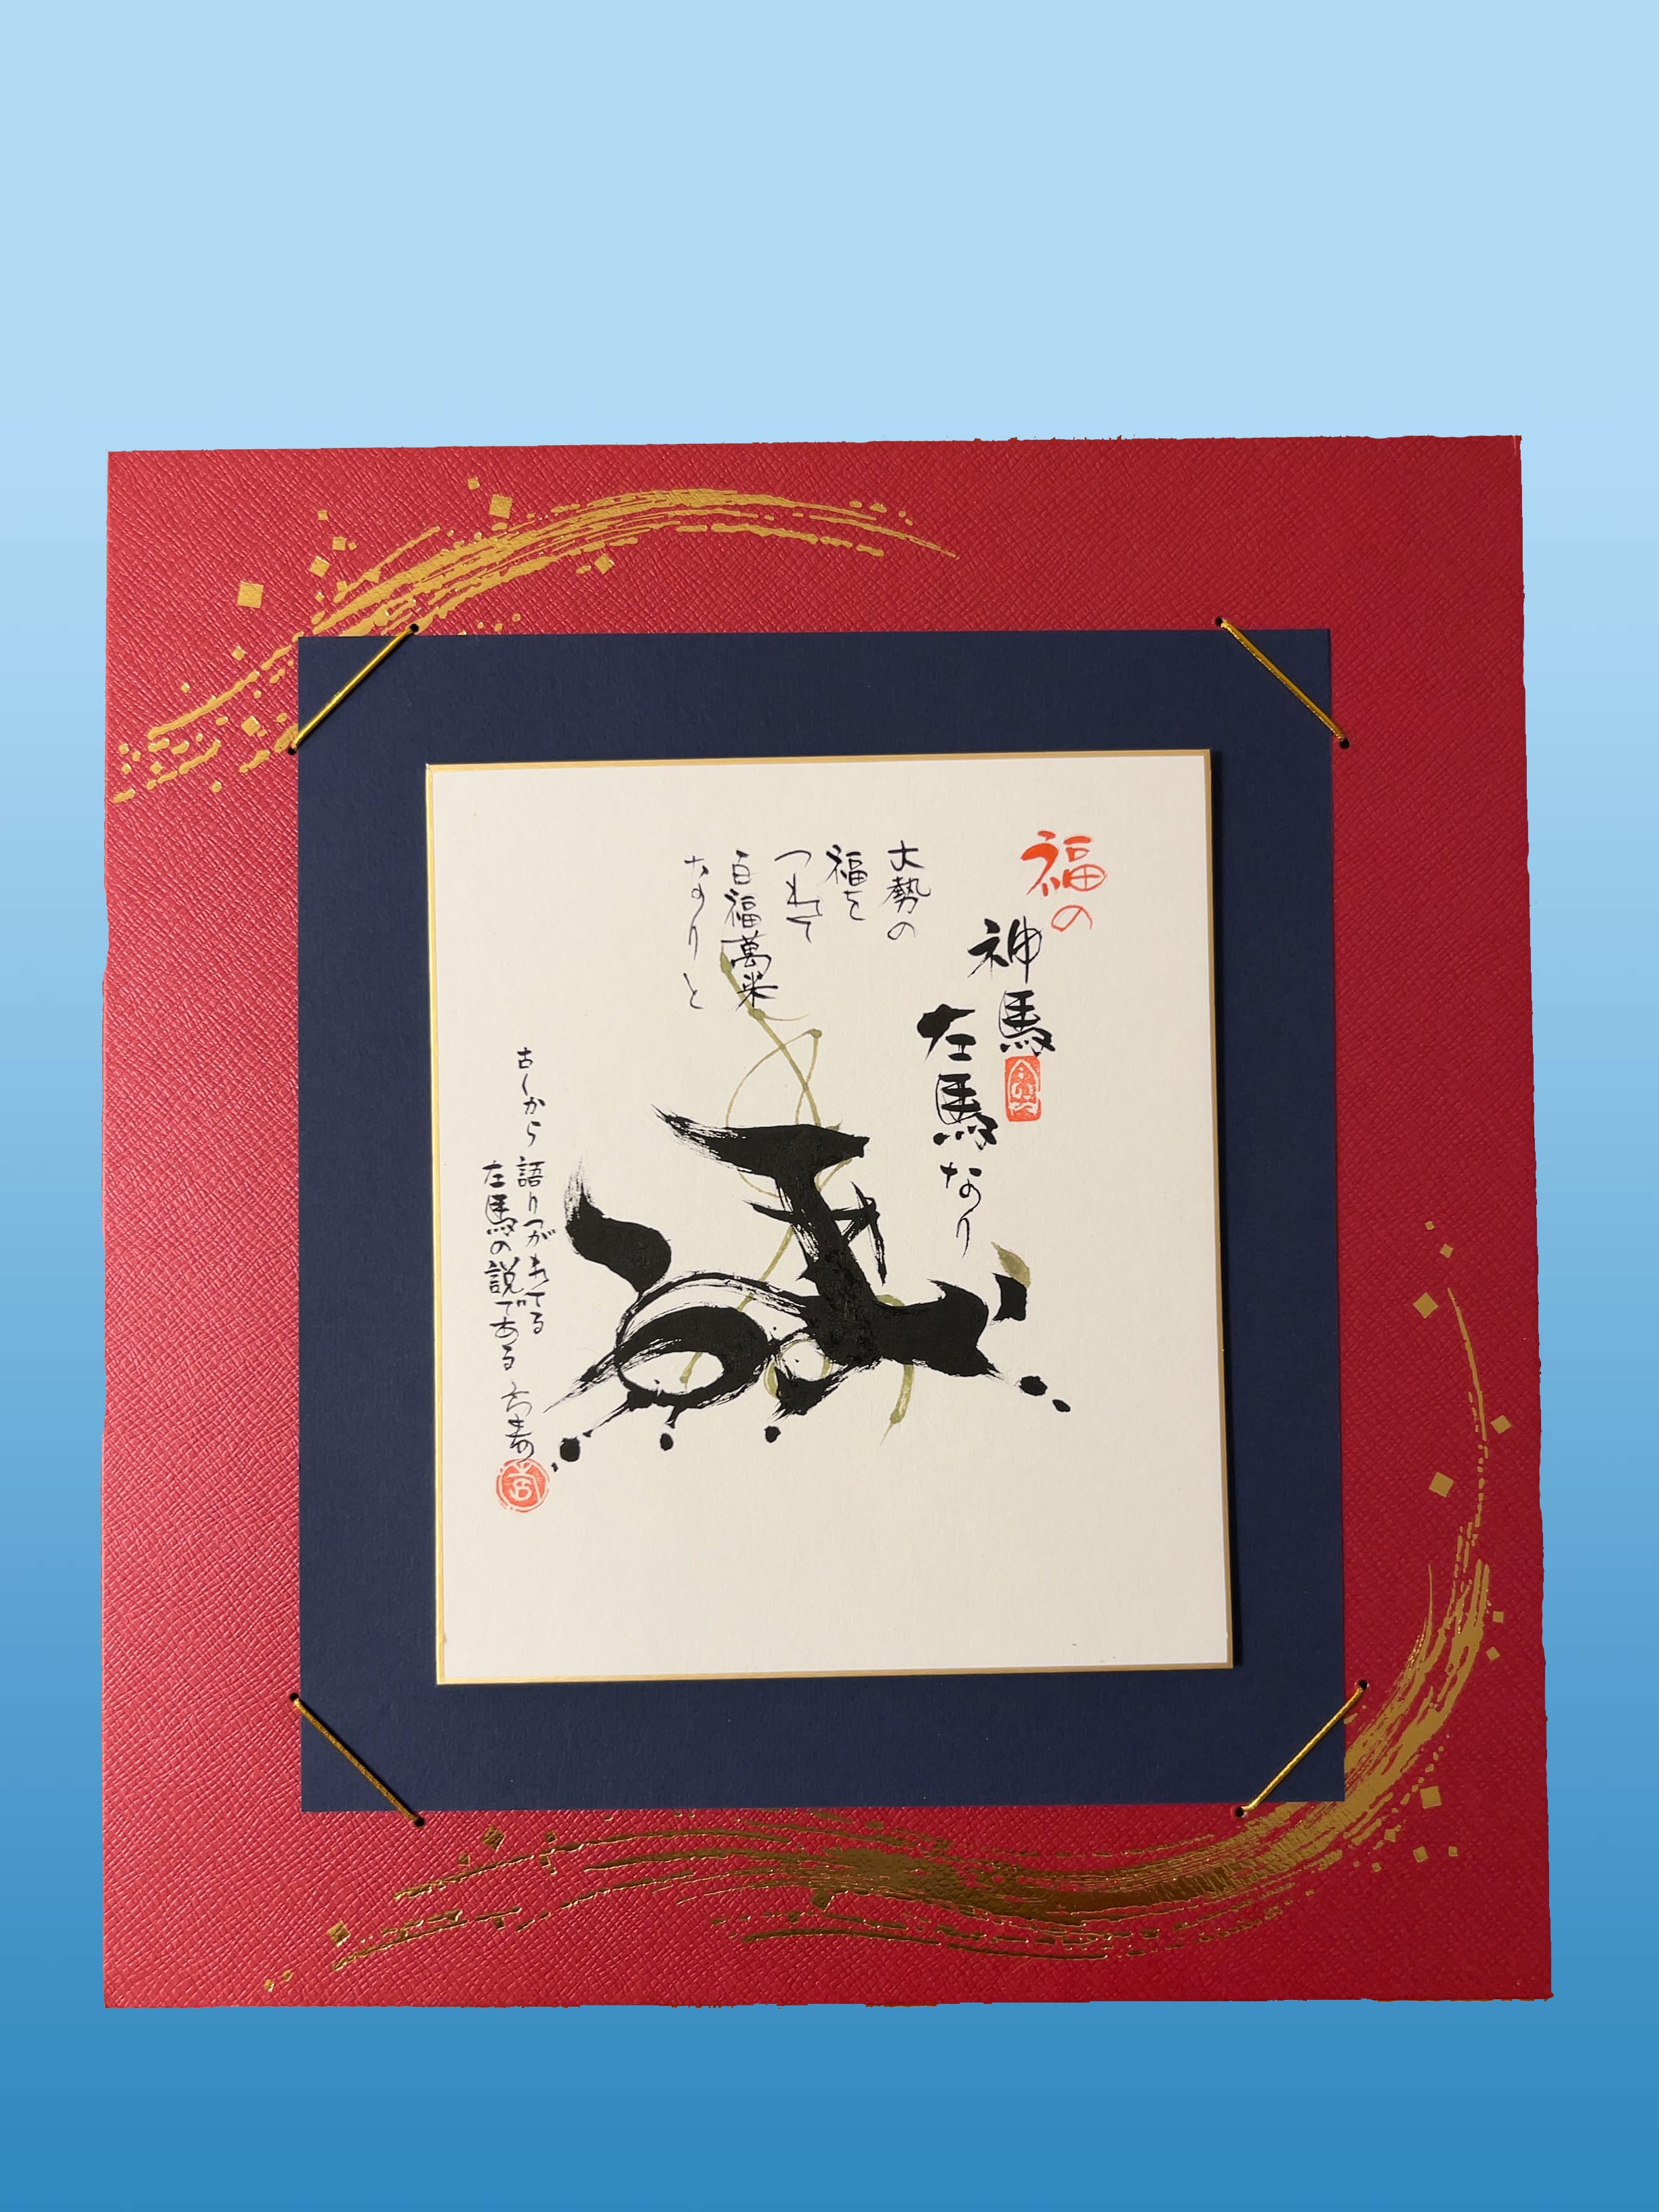 福の
神馬
左馬なり
大勢の
福を
つれて
百福萬来
なりと
古くから語りつがれてる
左馬の説である